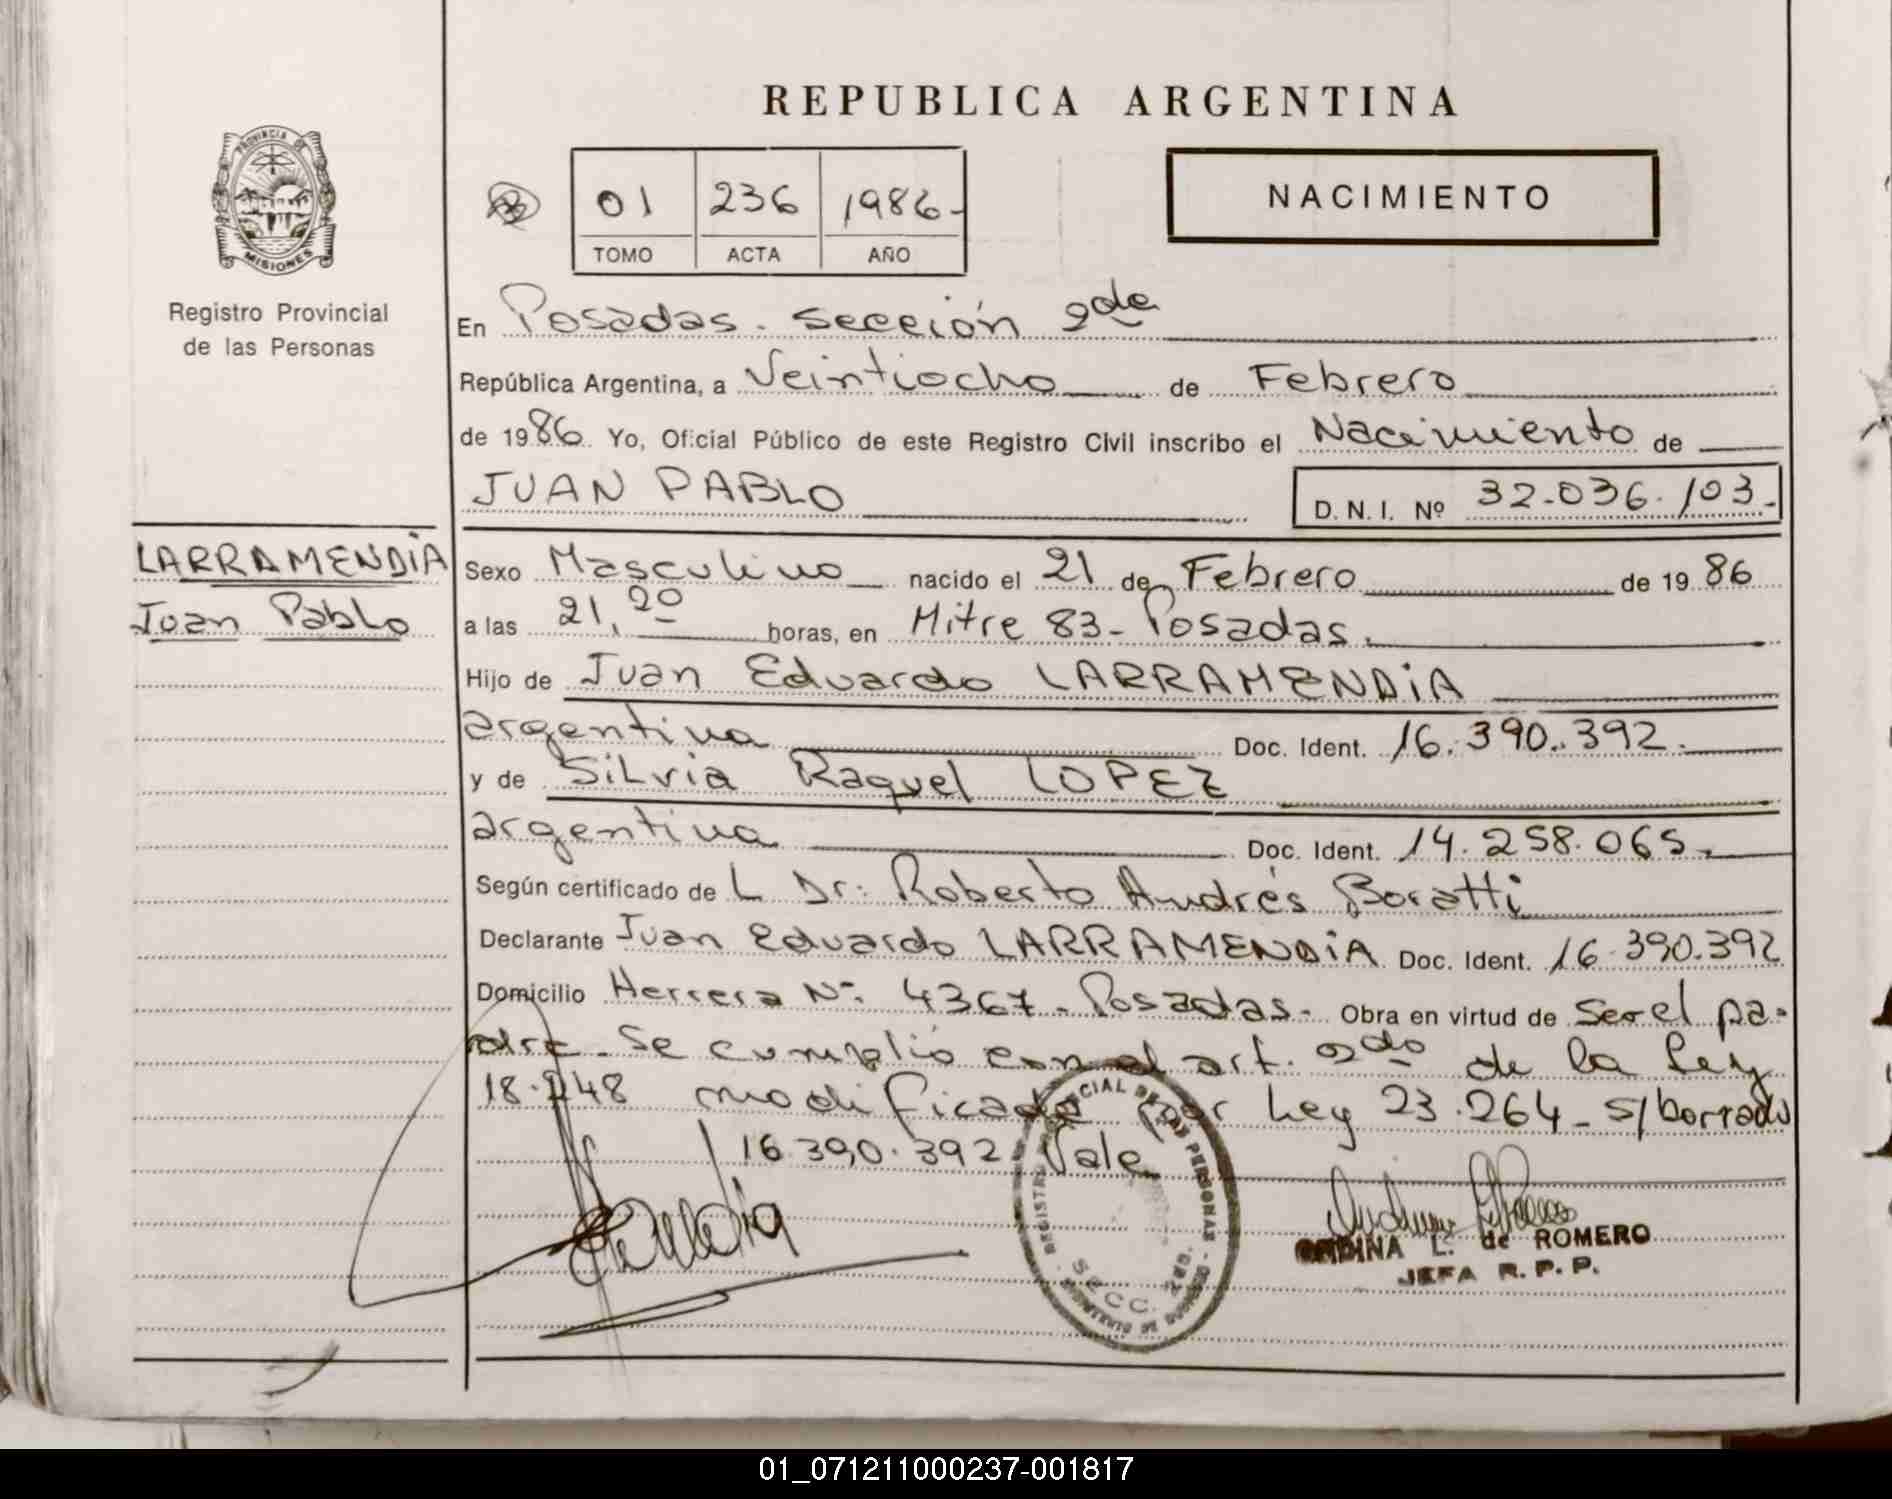 REPUBLICA ARGENTINA
PROVINCIA DE
MISIONES
Registro Provincial
de las Personas
01 236 1986-
TOMO ACTA AÑO
NACIMIENTO
En Posadas. sección 2da
República Argentina, a Veintiocho de Febrero
de 1986 Yo, Oficial Público de este Registro Civil inscribo el Nacimiento de
JUAN PABLO D. N. I. Nº 32.036.103.-
LARRAMENDiA
Juan Pablo
Sexo Masculino nacido el 21 de Febrero de 1986
a las 21,20 horas, en Mitre 83- Posadas.
Hijo de Juan Eduardo LARRAMENDiA
argentina Doc. Ident. 16.390.392.
y de SiLvia Raquel LOPEZ
argentina Doc. Ident. 14.258.065.
Según certificado de L Dr: Roberto Andrés Boratti
Declarante Juan Eduardo LARRAMENDiA Doc. Ident. 16.390.392
Domicilio Herrera Nº: 4367- Posadas.- Obra en virtud de ser el pa-
dre- Se cumplió con el art. 2do de la Ley
18.248 modificada por Ley 23.264- s/borrado
16.390.392 Vale
REGISTRO PROVINCIAL DE LAS PERSONAS
SECC. 2da.
L. de ROMERO
JEFA R. P. P.
01_071211000237-001817